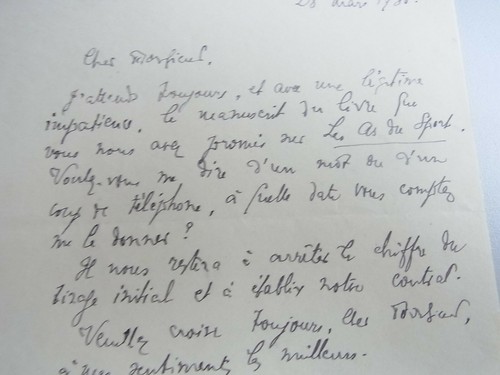 mars 19
Cher Monsieur,
J'attends toujours, et avec une légitime
impatience, le manuscrit du livre que
vous nous avez promis sur Les As du Sport.
Voulez-vous me dire d'un mot ou d'un
coup de téléphone, à quelle date vous comptez
me le donner ?
Il nous restera à arrêter le chiffre du
tirage initial et à établir notre contrat.
Veuillez croire toujours, Cher Monsieur,
à mes sentiments les meilleurs.